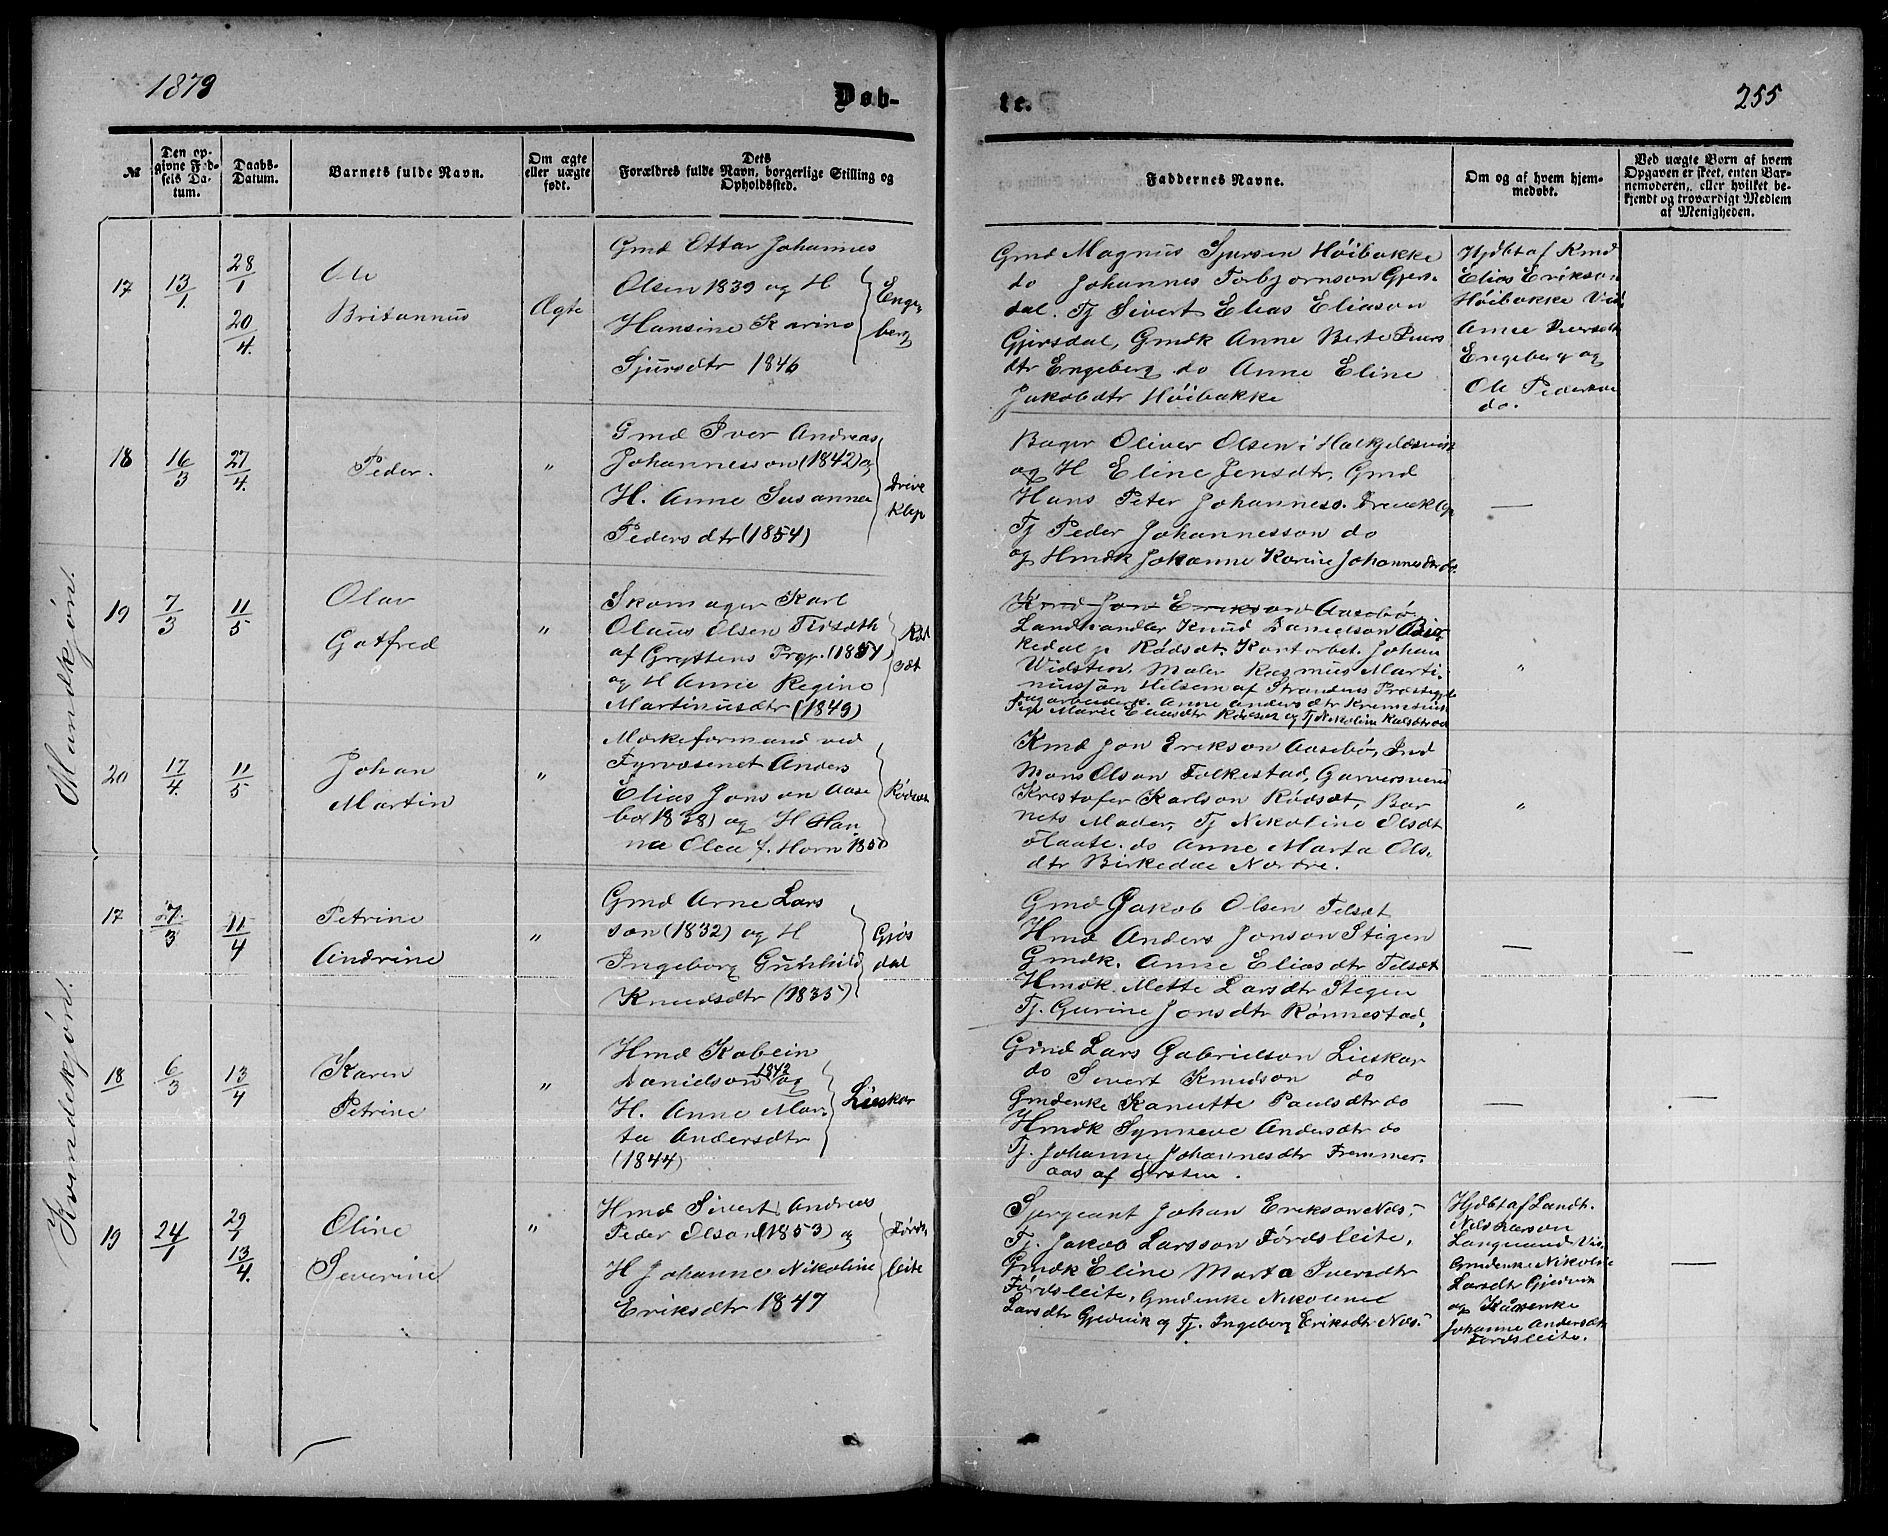 1879
Døb-
te.
255
№
Den op-
givne Fød-
sels Da-
tum.
Daabs-
Datum.
Barnets fulde Navn.
Om ægte
eller uægte
født.
Dets
Forældres fulde Navn, borgerlige Stilling og
Opholdssted.
Faddernes Navne.
Om og af hvem hjem-
medøbt.
Ved uægte Børn af hvem
Opgaven er skeet, enten Bar-
nemoderen, eller hvilket be-
kjendt og troværdigt Medlem
af Menigheden.
Mandkjøn.
17
13/1
28/1
20/4.
Ole
Britannus
Ægte
Gmd Ottar Johannes
Olsen 1839 og H
Hansine Karine
Sjursdtr 1846
Enge-
berg
Gmd Magnus Sjursen Høibakke
do Johannes Torbjørnson Gjers-
dal. Tj Sivert Elias Eliason
Gjersdal, Gmdk Anne Berte Ivers
dtr Engeberg do Anne Eline
Jakobdtr Høibakke
Hjdbt af Kmd
Elias Erikson
Høibakke Vid.
Anne Iversdtr
Engeberg og
Ole Pederson
do.
18
16/3
27/4.
Peder.
"
Gmd Iver Andreas
Johannesson (1842) og
H. Anne Susanna
Pedersdtr (1854)
Dreve
Klep
Bager Oliver Olsen i Halkjeldsvik
og H Eline Jensdtr, Gmd
Hans Peter Johanness. Dreveklep
Tj Peder Johannesson do
og Hmdk Johanne Karine Johannesdtr do.
—
19
7/3
11/5
Olav
Gotfred
"
Skomager Karl
Olaus Olsen Tisæth
af Gryttens Prgj. (1851)
og H Anne Regine
Martinusdtr (1849)
Rød
sæt
Kmd Jon Erikson Aasebø
Landhandler Knud Danielson Bir-
kedal p Rødsæt. Kontorbet. Johan
Widsten. Maler Rasmus Marti-
nussøn Hilsem af Strandens Præstegjld
og arbeidersk. Anne Andersdtr
Pige Marie Eliasdtr Rødset og Tj Nikoline
"
20
17/4.
11/5
Johan
Martin
"
Mærkeformand ved
Fyrvæsenet Anders
Elias Jonson Aase
bø (1838) og H Han
na Olea f. Horn 1850
Rødsæt
Kmd Jon Erikson Aasebø, Ind
Mons Olson Folkestad, Garversvend
Kristofer Karlson Rødsæt, Bar
nets Moder, Tj Nikoline Olsdtr
Flaate. do Anne Marta Ols-
dtr Birkedal Nordre.
"
Kvindekjøn.
17
7/3
11/4
Petrine
Andrine
"
Gmd Arne Lars
son (1832) og H
Ingeborg Gunhild
Knudsdtr (1835)
Gjøs
dal
Gmd Jakob Olsen Telsæt
Hmd Anders Jonson Stigen
Gmdk. Anne Eliasdtr Telsæt
Hmdk. Mette Larsdtr Stegen
Tj. Gurine Jonsdtr Rønnestad,
—
—
18
6/3
13/4
Karen
Petrine
"
Hmd Kobein
Danielson 1842 og
H. Anne Mar-
ta Andersdtr
(1844)
Lieskar
Gmd Lars Gabrielson Lieskar
do Sivert Knudson do
Gmdenke Kanutte Paulsdtr do
Hmdk Synneve Andersdtr do
Tj. Johanne Johannesdtr Fremmer-
aas af Ørsten.
—
—
19
24/1
29/1
13/4.
Oline
Severine
"
Hmd Sivert Andreas
Peder Olson (1853) og
H Johanne Nikoline
Eriksdtr 1847
Førds
leite
Sjergeant Johan Erikson Næs,
Tj. Jakob Larsson Førdsleite,
Gmdk Eline Marta Iversdtr
Førdsleite, Gmdenke Nikoline
Larsdtr Gjedvik og Tj. Ingeborg Eriksdtr Næs.
Hjdbt af Landh.
Nils Larson
Langesund Vi.
Gmdenke Nikoline
Larsdtr Gjedvik
og Kårenke
Johanne Andersdtr
Førdsleite.
—